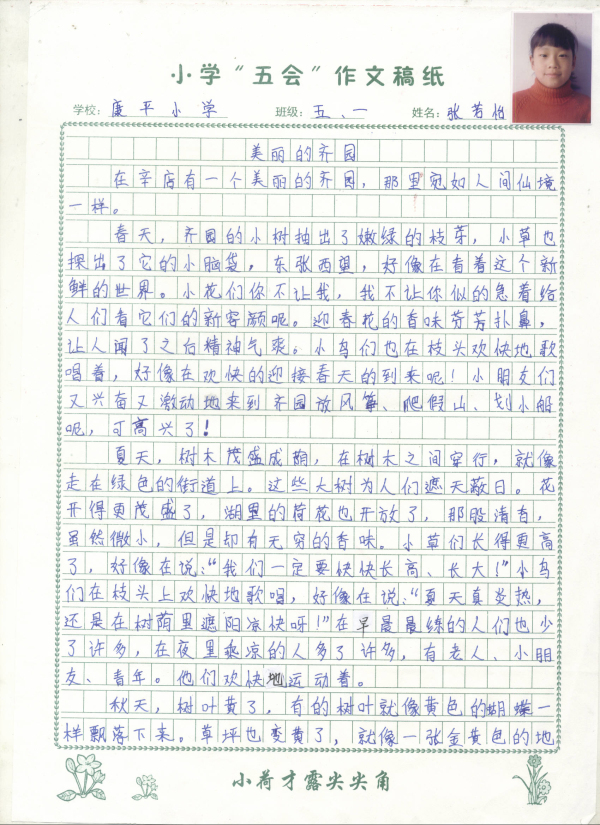 小学“五会”作文稿纸
学校：康平小学 班级：五、一 姓名：张若怡
美丽的齐园
在辛店有一个美丽的齐园，那里宛如人间仙境
一样。
春天，齐园的小树抽出了嫩绿的枝芽，小草也
探出了它的小脑袋，东张西望，好像在看着这个新
鲜的世界。小花们你不让我，我不让你似的急着给
人们看它们的新容颜呢。迎春花的香味芬芳扑鼻，
让人闻了之后精神气爽。小鸟们也在枝头欢快地歌
唱着，好像在欢快的迎接春天的到来呢！小朋友们
又兴奋又激动地来到齐园放风筝、爬假山、划小船
呢，可高兴了！
夏天，树木茂盛成荫，在树木之间穿行，就像
走在绿色的街道上。这些大树为人们遮天蔽日。花
开得更茂盛了，湖里的荷花也开放了，那股清香，
虽然微小，但是却有无穷的香味。小草们长得更高
了，好像在说：“我们一定要快快长高、长大！”小鸟
们在枝头上欢快地歌唱，好像在说：“夏天真炎热，
还是在树荫里遮阳凉快呀！”在早晨晨练的人们也少
了许多，在夜里乘凉的人多了许多，有老人、小朋
友、青年。他们欢快地运动着。
秋天，树叶黄了，有的树叶就像黄色的蝴蝶一
样飘落下来。草坪也变黄了，就像一张金黄色的地
小荷才露尖尖角